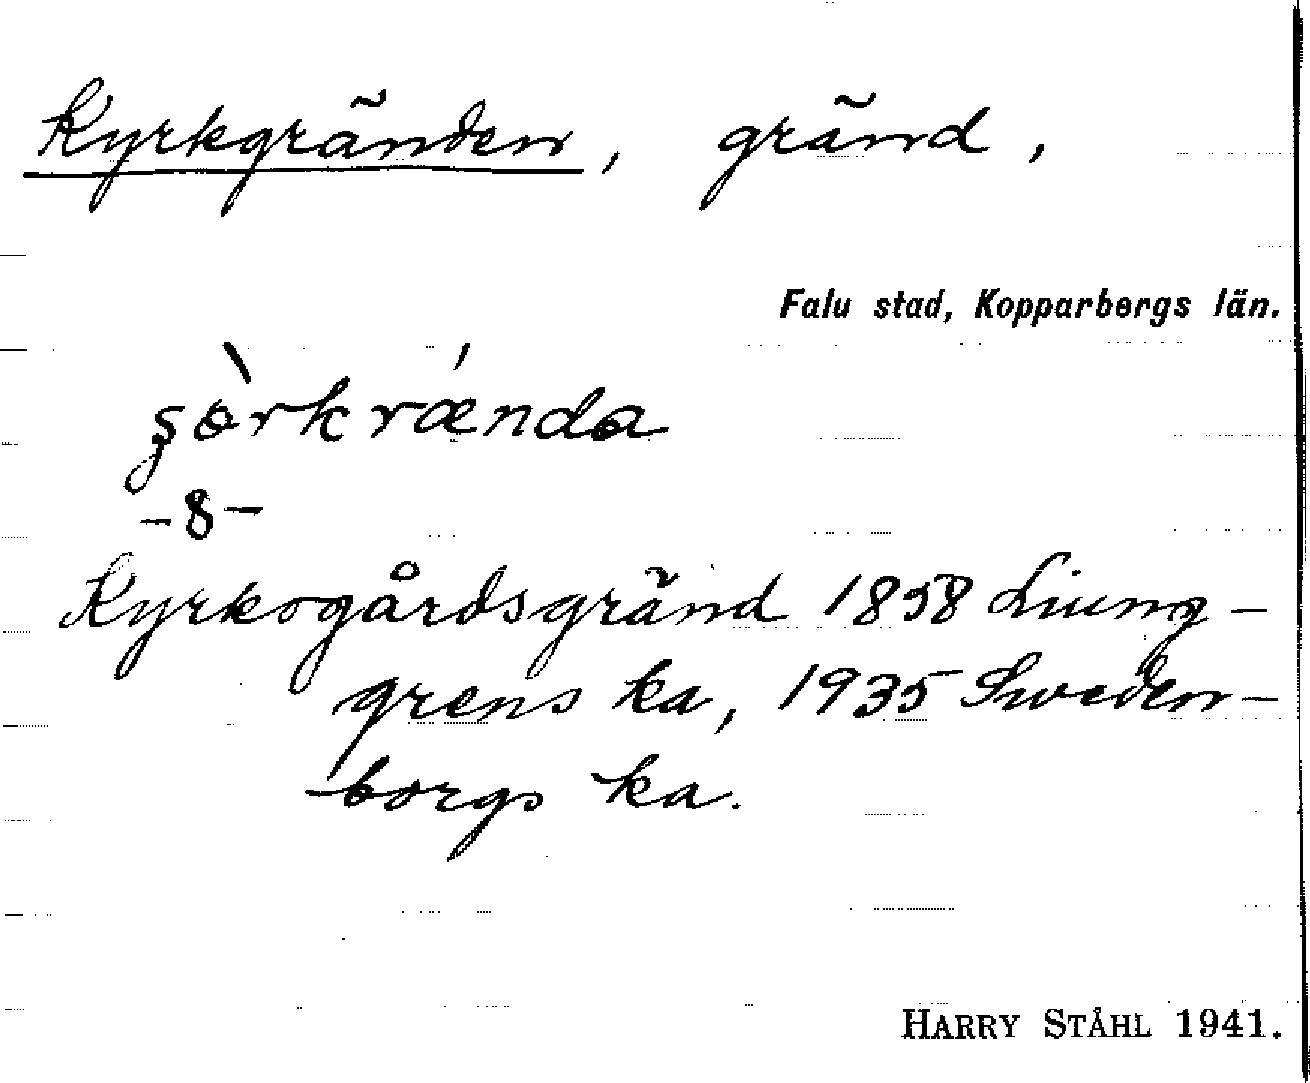 Kyrkgränden, gränd,
Falu stad, Kopparbergs län.
şɵ̀rkrǽnda
-8-
Kyrkogårdsgränd 1858 Liung-
grens ka, 1935 Sweden-
borgs ka.
HARRY STÅHL 1941.